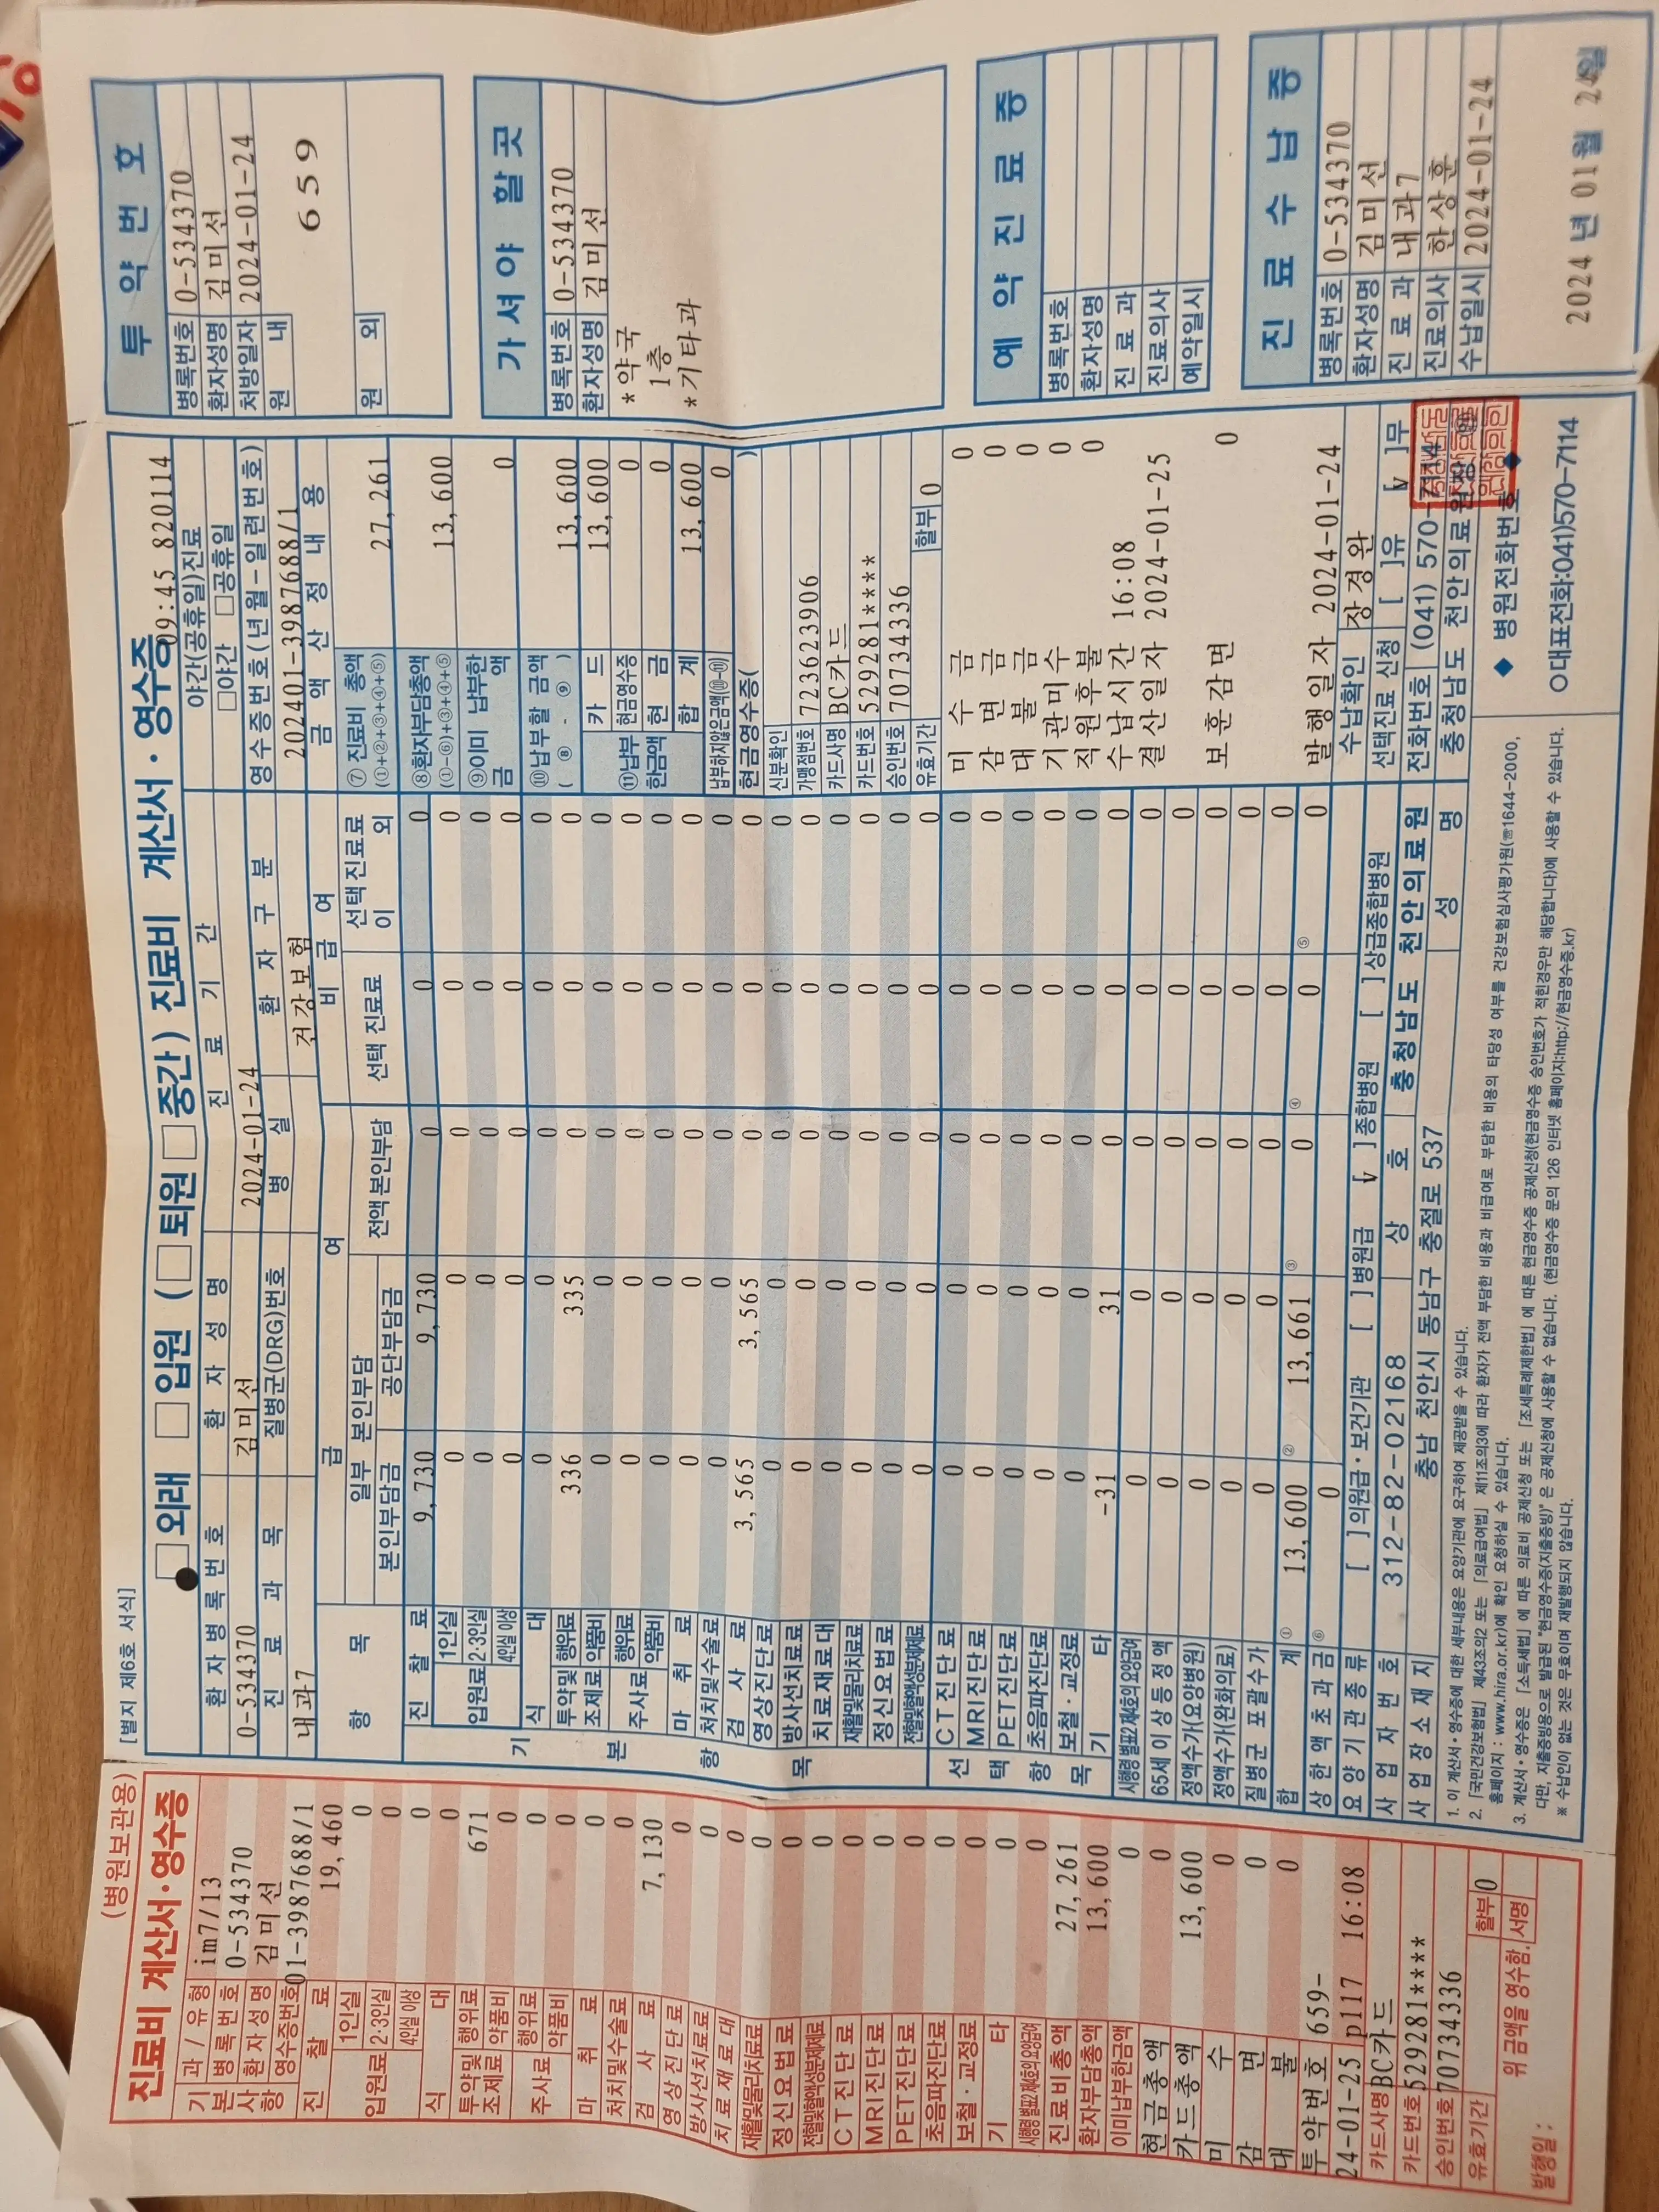 (병원보관용)
진료비 계산서·영수증
기 과 / 유형 im7/13
본 병록번호 0-534370
사 환자성명 김미선
항 영수증번호 01-3987688/1
진 찰 료 19,460
입원료 1인실 0
2·3인실 0
4인실 이상 0
식 대 0
투약및 조제료 행위료 671
약품비 0
주사료 행위료 0
약품비 0
마 취 료 0
처치및수술료 0
검 사 료 7,130
영상진단료 0
방사선치료료 0
치료재료대 0
재활및물리치료료 0
정신요법료 0
전혈및혈액성분제제료 0
CT진단료 0
MRI진단료 0
PET진단료 0
초음파진단료 0
보철·교정료 0
기 타 0
시행령 별표2 제4호의 요양급여 0
진료비총액 27,261
환자부담총액 13,600
이미납부한금액 0
현금총액 0
카드총액 13,600
미 수 0
감 면 0
대 불 0
투약번호 659-
24-01-25 p117 16:08
카드사명 BC카드
카드번호 529281****
승인번호 70734336
유효기간 할부 0
위 금액을 영수함. 서명
발행일 :
[별지 제6호 서식]
외래 입원 (퇴원 중간) 진료비 계산서·영수증
09:45 820114
환 자 병 록 번 호 환 자 성 명 진 료 기 간 야간(공휴일)진료
0-534370 김미선 2024-01-24 야간 공휴일
진 료 과 목 질병군(DRG)번호 병 실 환 자 구 분 영수증번호(년월-일련번호)
내과7 건강보험 202401-3987688/1
항 목 급 여 비 급 여 금 액 산 정 내 용
일부 본인부담 전액본인부담 선택 진료료 선택진료료 이 외
본인부담금 공단부담금
기 본 항 목
진 찰 료 9,730 9,730 0 0 0
입원료 1인실 0 0 0 0 0
2·3인실 0 0 0 0 0
4인실 이상 0 0 0 0 0
식 대 0 0 0 0 0
투약및 조제료 행위료 336 335 0 0 0
약품비 0 0 0 0 0
주사료 행위료 0 0 0 0 0
약품비 0 0 0 0 0
마 취 료 0 0 0 0 0
처치및수술료 0 0 0 0 0
검 사 료 3,565 3,565 0 0 0
영상진단료 0 0 0 0 0
방사선치료료 0 0 0 0 0
치료재료대 0 0 0 0 0
재활및물리치료료 0 0 0 0 0
정신요법료 0 0 0 0 0
전혈및혈액성분제제료 0 0 0 0 0
선 택 항 목
CT진단료 0 0 0 0 0
MRI진단료 0 0 0 0 0
PET진단료 0 0 0 0 0
초음파진단료 0 0 0 0 0
보철·교정료 0 0 0 0 0
기 타 -31 31 0 0 0
시행령 별표2 제4호의 요양급여 0 0 0 0 0
65세 이상 등 정액 0 0 0 0 0
정액수가(요양병원) 0 0 0 0 0
정액수가(완화의료) 0 0 0 0 0
질병군 포괄수가 0 0 0 0 0
합 계 ① 13,600 ② 13,661 ③ 0 ④ 0 ⑤ 0
상 한 액 초 과 금 ⑥ 0
⑦ 진료비 총액 27,261
(①+②+③+④+⑤)
⑧환자부담총액 13,600
(①-⑥)+③+④+⑤
⑨이미 납부한 금 액 0
⑩납부할 금액 13,600
( ⑧ - ⑨ )
⑪납부 한금액 카 드 13,600
현금영수증 0
현 금 0
합 계 13,600
납부하지않은금액(⑩-⑪) 0
현금영수증( )
신분확인
가맹점번호 723623906
카드사명 BC카드
카드번호 529281****
승인번호 70734336
유효기간 할부 0
미 수 금 0
감 면 금 0
대 불 금 0
기관미수 0
직원후불 0
수납시간 16:08
결산일자 2024-01-25
보훈감면 0
발행일자 2024-01-24
수납확인 장경완
선택진료 신청 [ ]유 [V]무
요양기관종류 [ ]의원급·보건기관 [ ]병원급 [V]종합병원 [ ]상급종합병원
사 업 자 번 호 312-82-02168 상 호 충청남도 천안의료원 전화번호 (041) 570-7114
사 업 장 소 재 지 충남 천안시 동남구 충절로 537 성 명 충청남도 천안의료원장
1. 이 계산서·영수증에 대한 세부내용은 요양기관에 요구하여 제공받을 수 있습니다.
2. 「국민건강보험법」 제43조의2 또는 「의료급여법」 제11조의3에 따라 환자가 전액 부담한 비용과 비급여로 부담한 비용의 타당성 여부를 건강보험심사평가원(☎1644-2000,
홈페이지 : www.hira.or.kr)에 확인 요청하실 수 있습니다.
3. 계산서·영수증은 「소득세법」에 따른 의료비 공제신청 또는 「조세특례제한법」에 따른 현금영수증 공제신청(현금영수증 승인번호가 적힌경우만 해당합니다)에 사용할 수 있습니다.
다만, 지출증빙용으로 발급된 "현금영수증(지출증빙)"은 공제신청에 사용할 수 없습니다. (현금영수증 문의 126 인터넷 홈페이지:http://현금영수증.kr)
※ 수납인이 없는 것은 무효이며 재발행되지 않습니다.
◆ 병원전화번호 ◆
○대표전화:041)570-7114
투 약 번 호
병록번호 0-534370
환자성명 김미선
처방일자 2024-01-24
원 내 659
원 외
가 셔 야 할 곳
병록번호 0-534370
환자성명 김미선
*약국
1층
*기타과
예 약 진 료 증
병록번호
환자성명
진 료 과
진료의사
예약일시
진 료 수 납 증
병록번호 0-534370
환자성명 김미선
진 료 과 내과7
진료의사 한상훈
수납일시 2024-01-24
2024 년 01월 24일